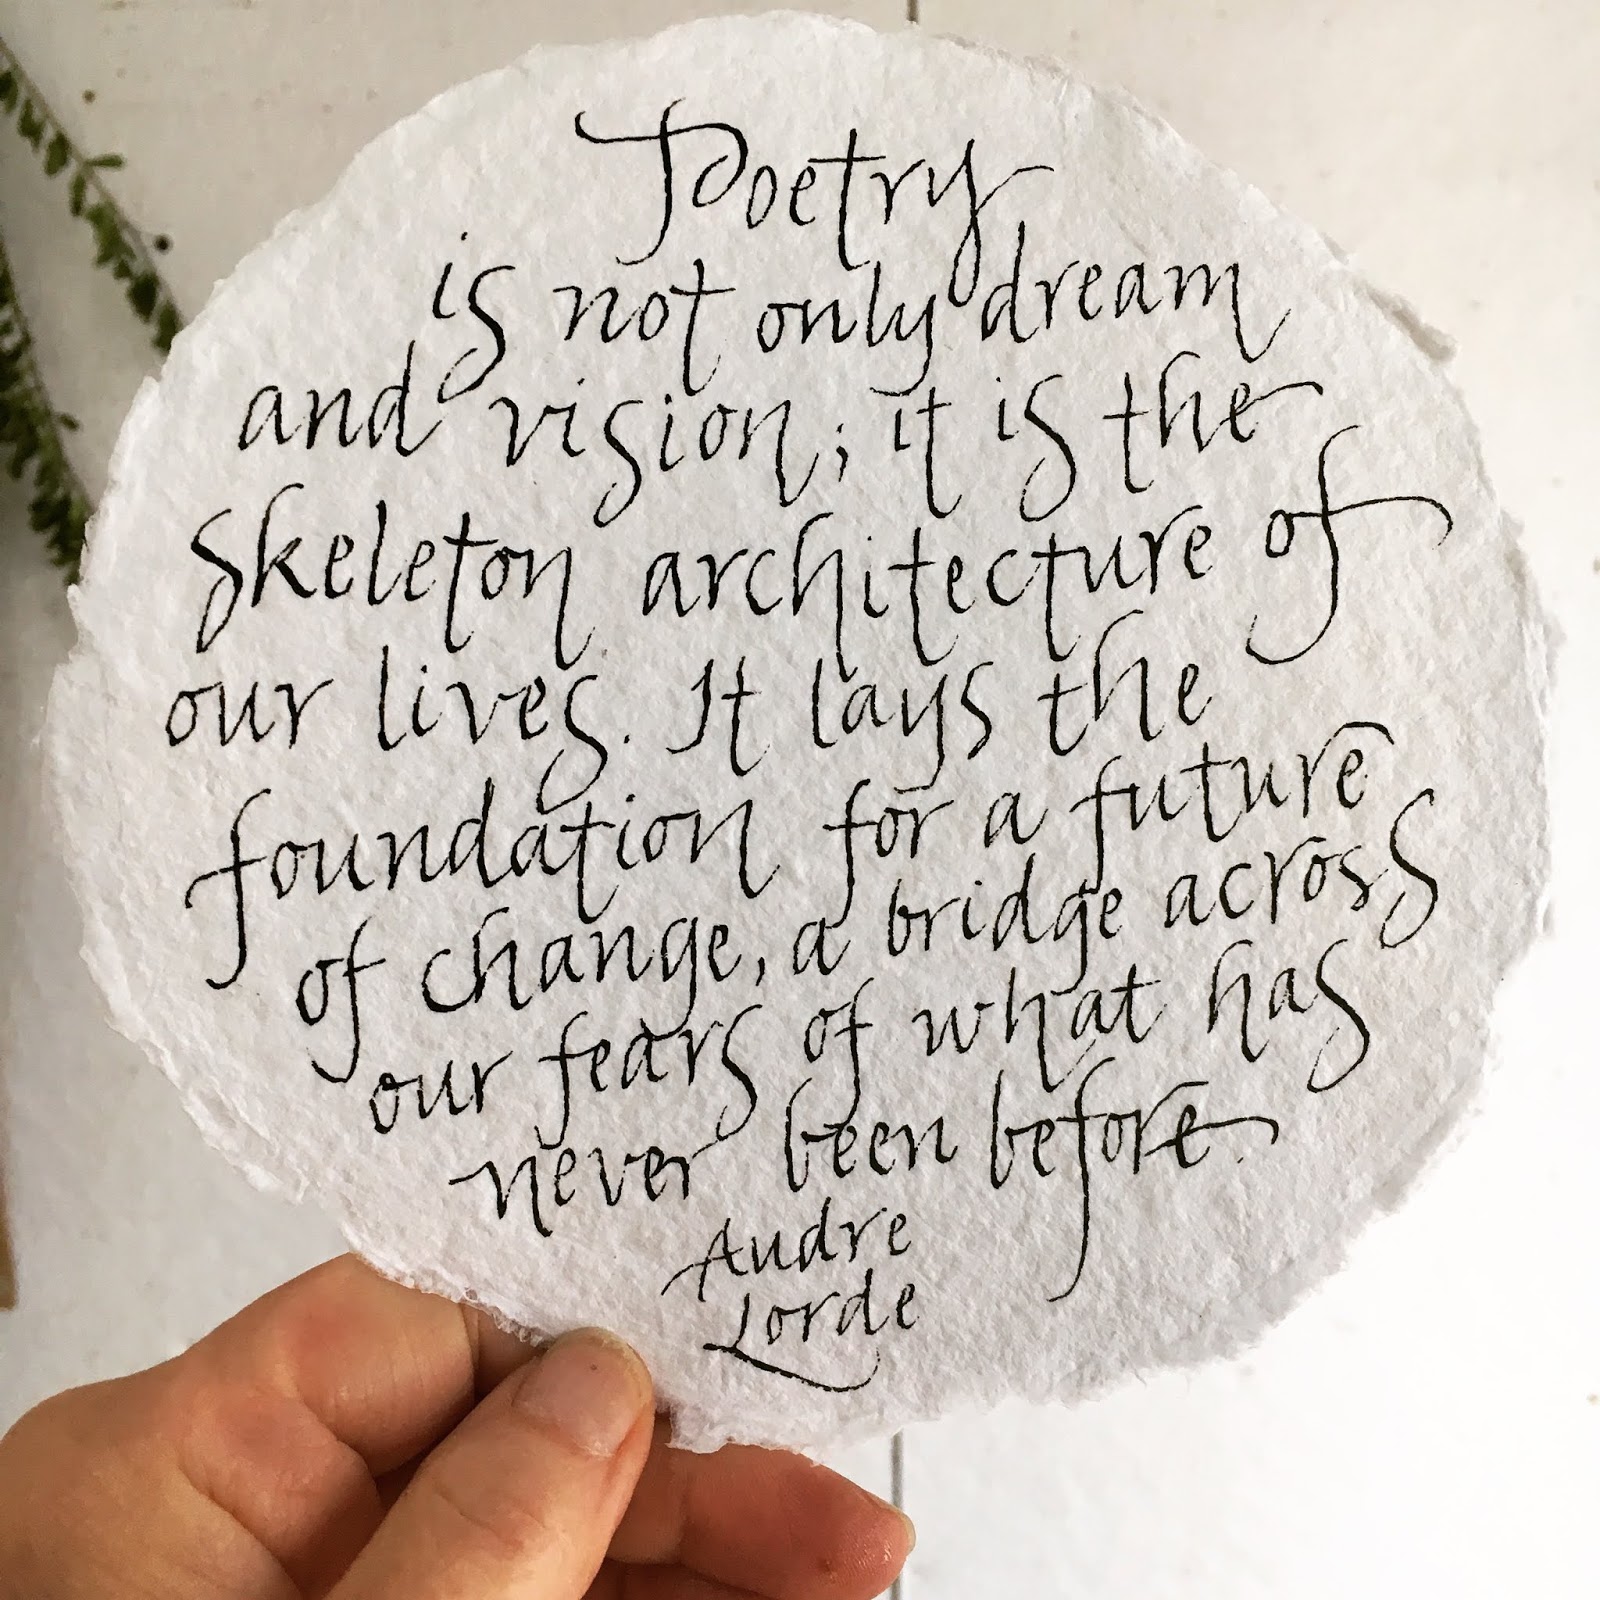 Poetry
is not only dream
and vision; it is the
skeleton architecture of
our lives. It lays the
foundation for a future
of change, a bridge across
our fears of what has
never been before.
Audre
Lorde